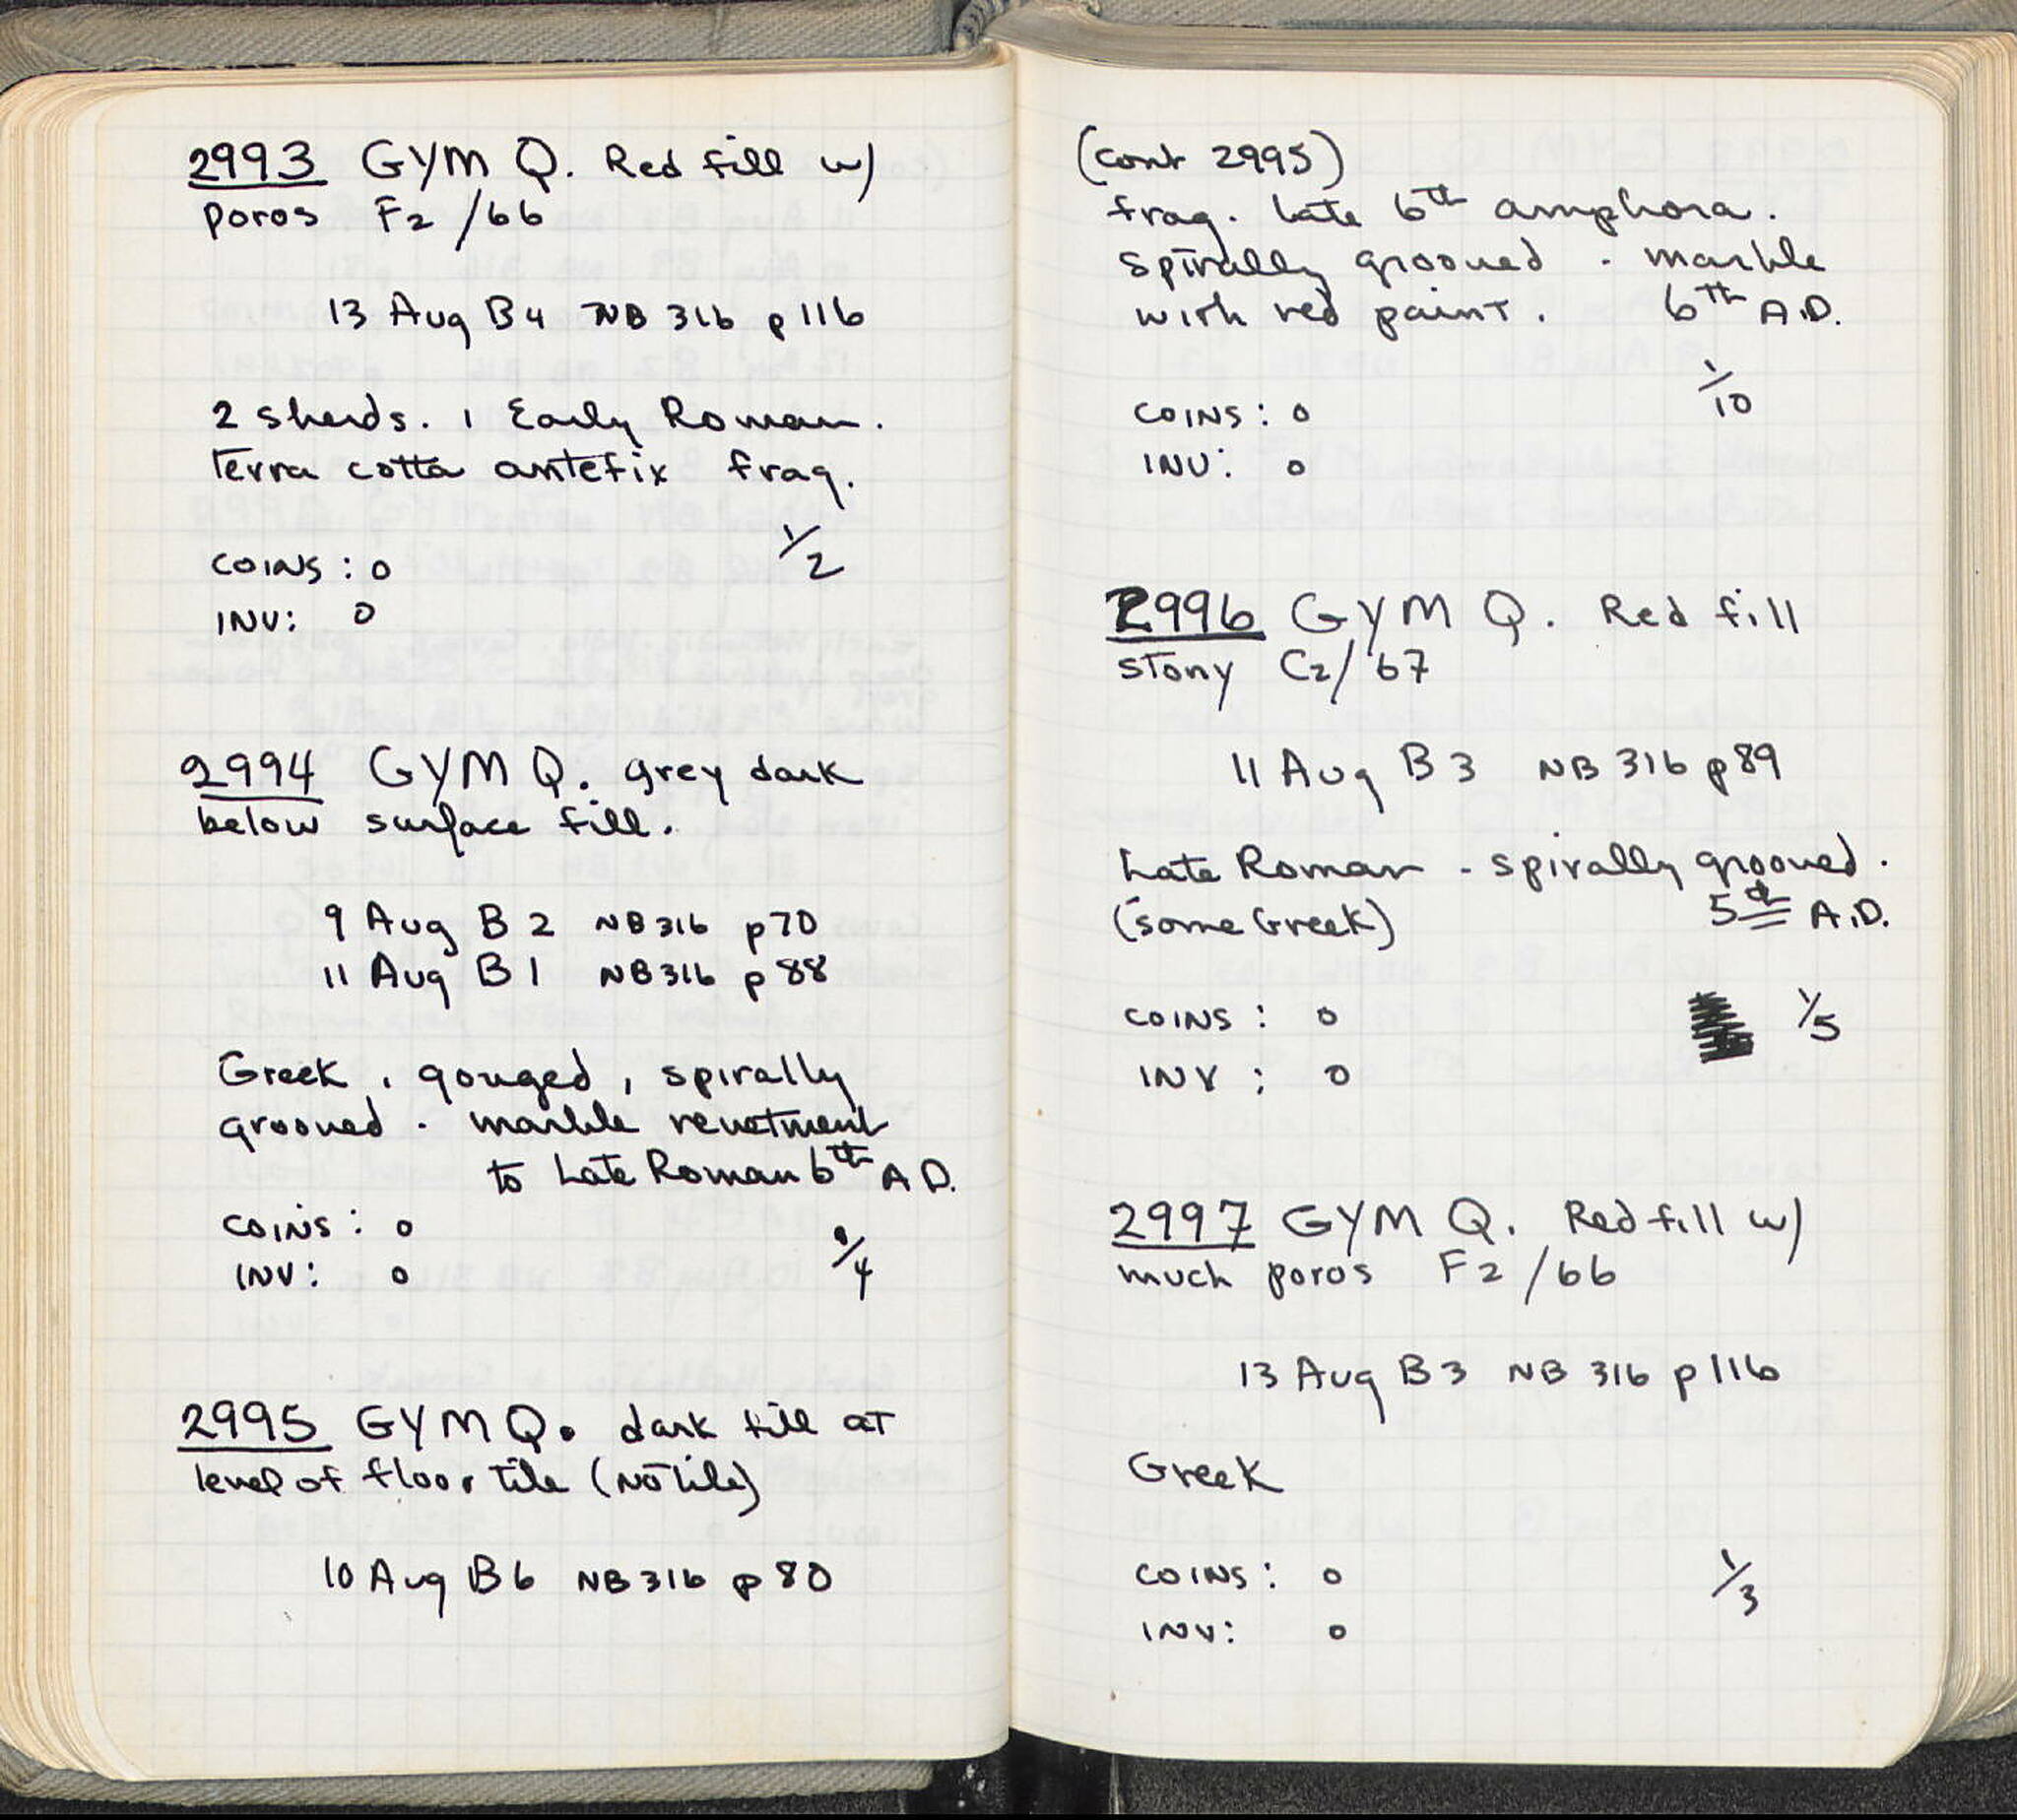 2993 GYM Q. Red fill w/
poros F2 /66
13 Aug B4 NB 316 p116
2 sherds. 1 Early Roman.
Terra cotta antefix frag.
COINS: 0 1/2
INV: 0
2994 GYM Q. grey dark
below surface fill.
9 Aug B2 NB316 p70
11 Aug B1 NB316 p88
Greek, gouged, spirally
grooved. marble revetment
to Late Roman 6th A D.
COINS: 0
INV: 0 1/4
2995 GYM Q. dark fill at
level of floor tile (no tile)
10 Aug B6 NB316 p80
(cont 2995)
frag. late 6th amphora.
spirally grooved. marble
with red paint. 6th A.D.
COINS: 0 1/10
INV: 0
2996 GYM Q. Red fill
stony C2/67
11 Aug B3 NB 316 p89
Late Roman - spirally grooved.
(some Greek) 5th A.D.
COINS: 0 1/5
INV: 0
2997 GYM Q. Red fill w/
much poros F2 /66
13 Aug B3 NB 316 p116
Greek
COINS: 0 1/3
INV: 0